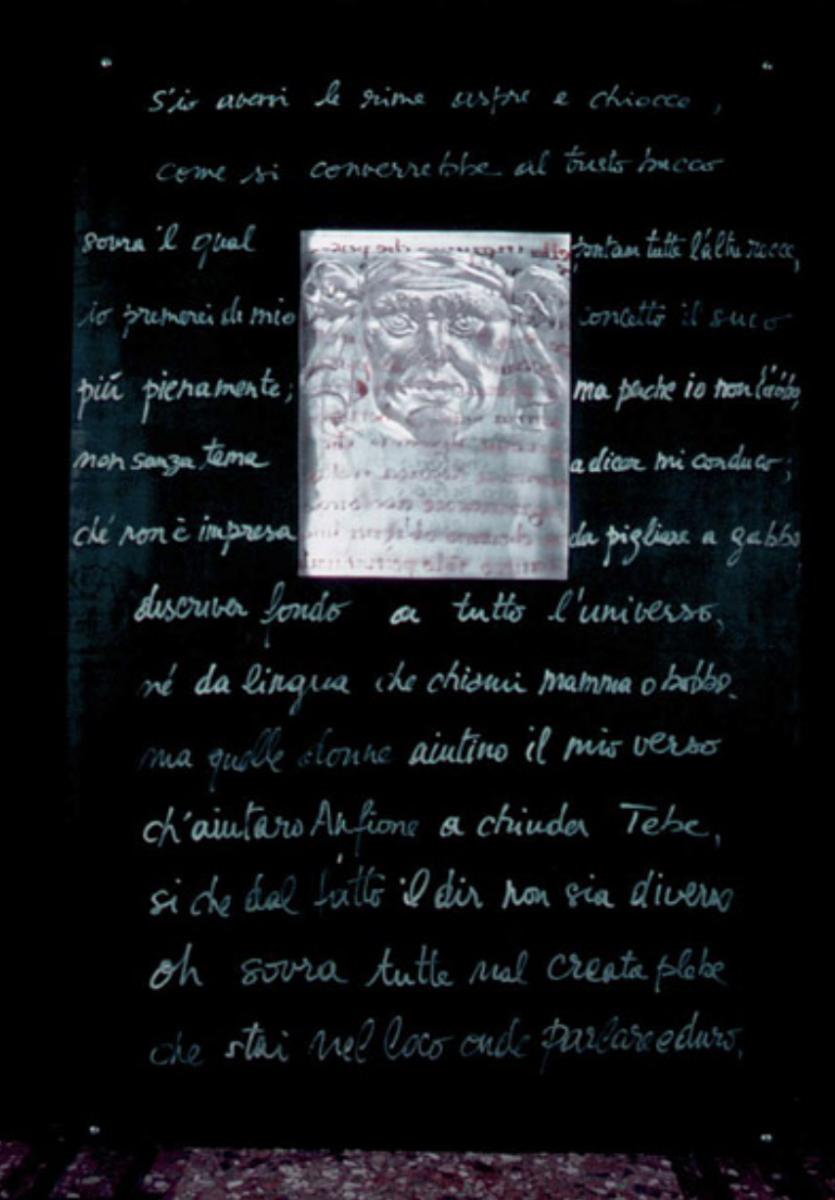 S'io avessi le rime aspre e chiocce,
come si converrebbe al tristo buco
sovra 'l qual pontan tutte l'altre rocce,
io premerei di mio concetto il suco
più pienamente; ma perche io non l'abbo,
non sanza tema a dicer mi conduco;
ché non è impresa da pigliare a gabbo
discriver fondo a tutto l'universo,
né da lingua che chiami mamma o babbo.
ma quelle donne aiutino il mio verso
ch'aiutaro Anfione a chiuder Tebe,
si che dal fatto il dir non sia diverso
oh sovra tutte mal creata plebe
che stai nel loco onde parlare e duro,